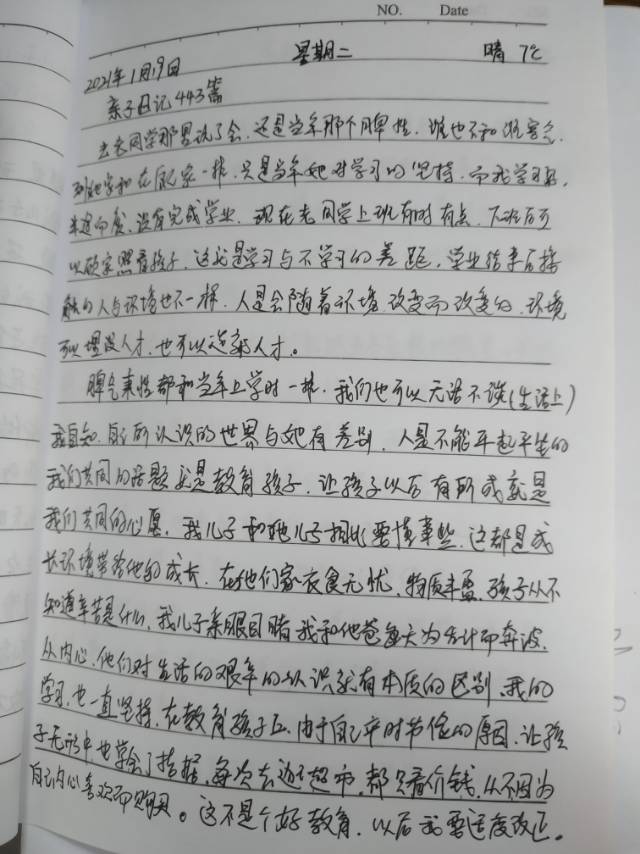 NO. Date
2021年1月19日 星期二 晴 7℃
亲子日记443篇
去老同学那里玩了会,还是当年那个脾性,谁也不和谁客气.
到她家和在自己家一样.只是当年她对学习的坚持.而我学习
半途而废,没有完成学业.现在老同学上班有时有点.下班后可
以顾家照看孩子.这就是学习与不学习的差距,学业结束后接
触的人与环境也不一样.人是会随着环境改变而改变的.环境
可以埋没人才.也可以造就人才。
脾气秉性都和当年上学时一样.我们也可以无话不谈(生活上)
我自知.自己所认识的世界与她有差别.人是不能平起平坐的
我们共同的话题就是教育孩子.让孩子以后有所成就是
我们共同的心愿.我儿子和她儿子相比要懂事些.这都是成
长环境带给他的成长.在他们家衣食无忧.物质丰盈.孩子从不
知道辛苦是什么.我儿子亲眼目睹我和他爸每天为生计而奔波.
从内心.他们对生活的艰辛的认识就有本质的区别.我的
学习.也一直坚持.在教育孩子上.由于自己平时节俭的原因.让孩
子无形中也学会了拮据.每次去逛超市.都只看价钱.从不因为
自己内心喜欢而购买。这不是个好教育.以后我要适度改正。